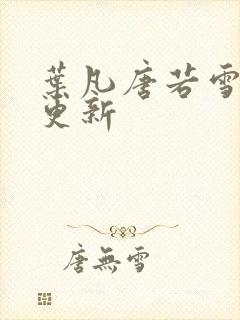 葉凡唐若雪
更新
唐無雪